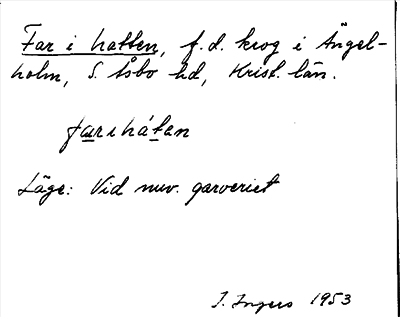 Far i hatten, f.d. krog i Ängel-
holm, S. Åsbo hd, Krist. län.
farihátən
Läge: Vid nuv. garveriet
I. Ingers 1953